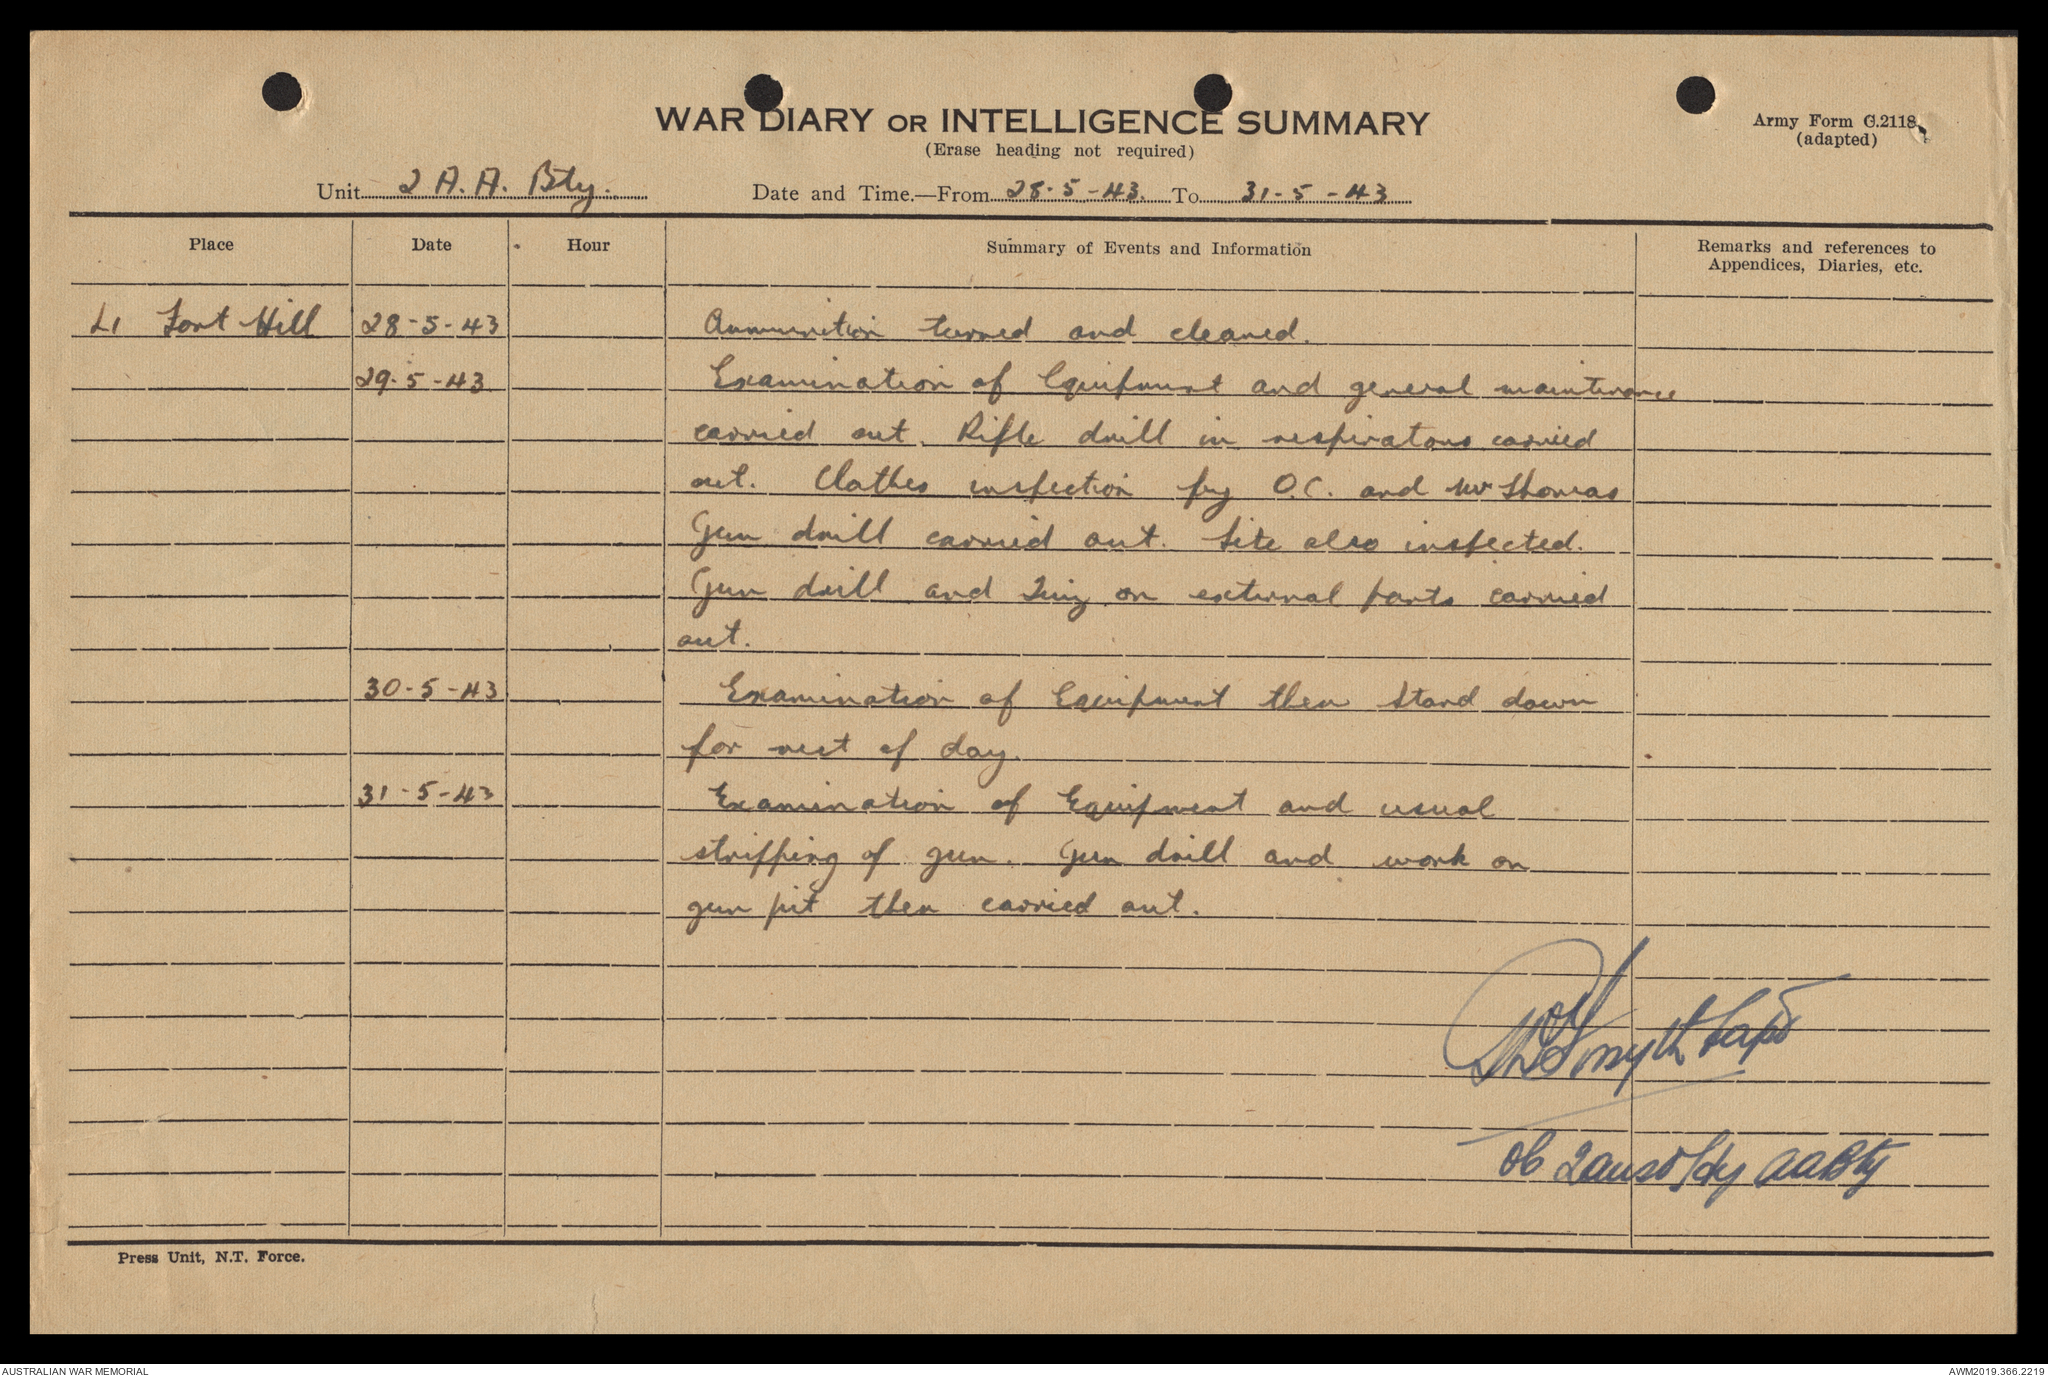 WAR DIARY OR INTELLIGENCE SUMMARY
(Erase heading not required)
Army Form C.2118.
(adapted)
Unit 2 A.A. Bty. Date and Time.—From 28-5-43. To 31-5-43
Place Date Hour Summary of Events and Information Remarks and references to
Appendices, Diaries, etc.
L1 Fort Hill 28-5-43 Ammunition turned and cleaned.
29-5-43 Examination of Equipment and general maintenance
carried out. Rifle drill in respirators carried
out. Clothes inspection by O.C. and Mr Thomas
Gun drill carried out. Site also inspected.
Gun drill and on external parts carried
out.
30-5-43 Examination of Equipment then stand down
for rest of day.
31-5-43 Examination of Equipment and usual
stripping of gun. Gun drill and work on
gun pit then carried out.
Smyth Capt
OC 2 Aust Hy AA Bty
Press Unit, N.T. Force.
AUSTRALIAN WAR MEMORIAL
AWM2019.366.2219